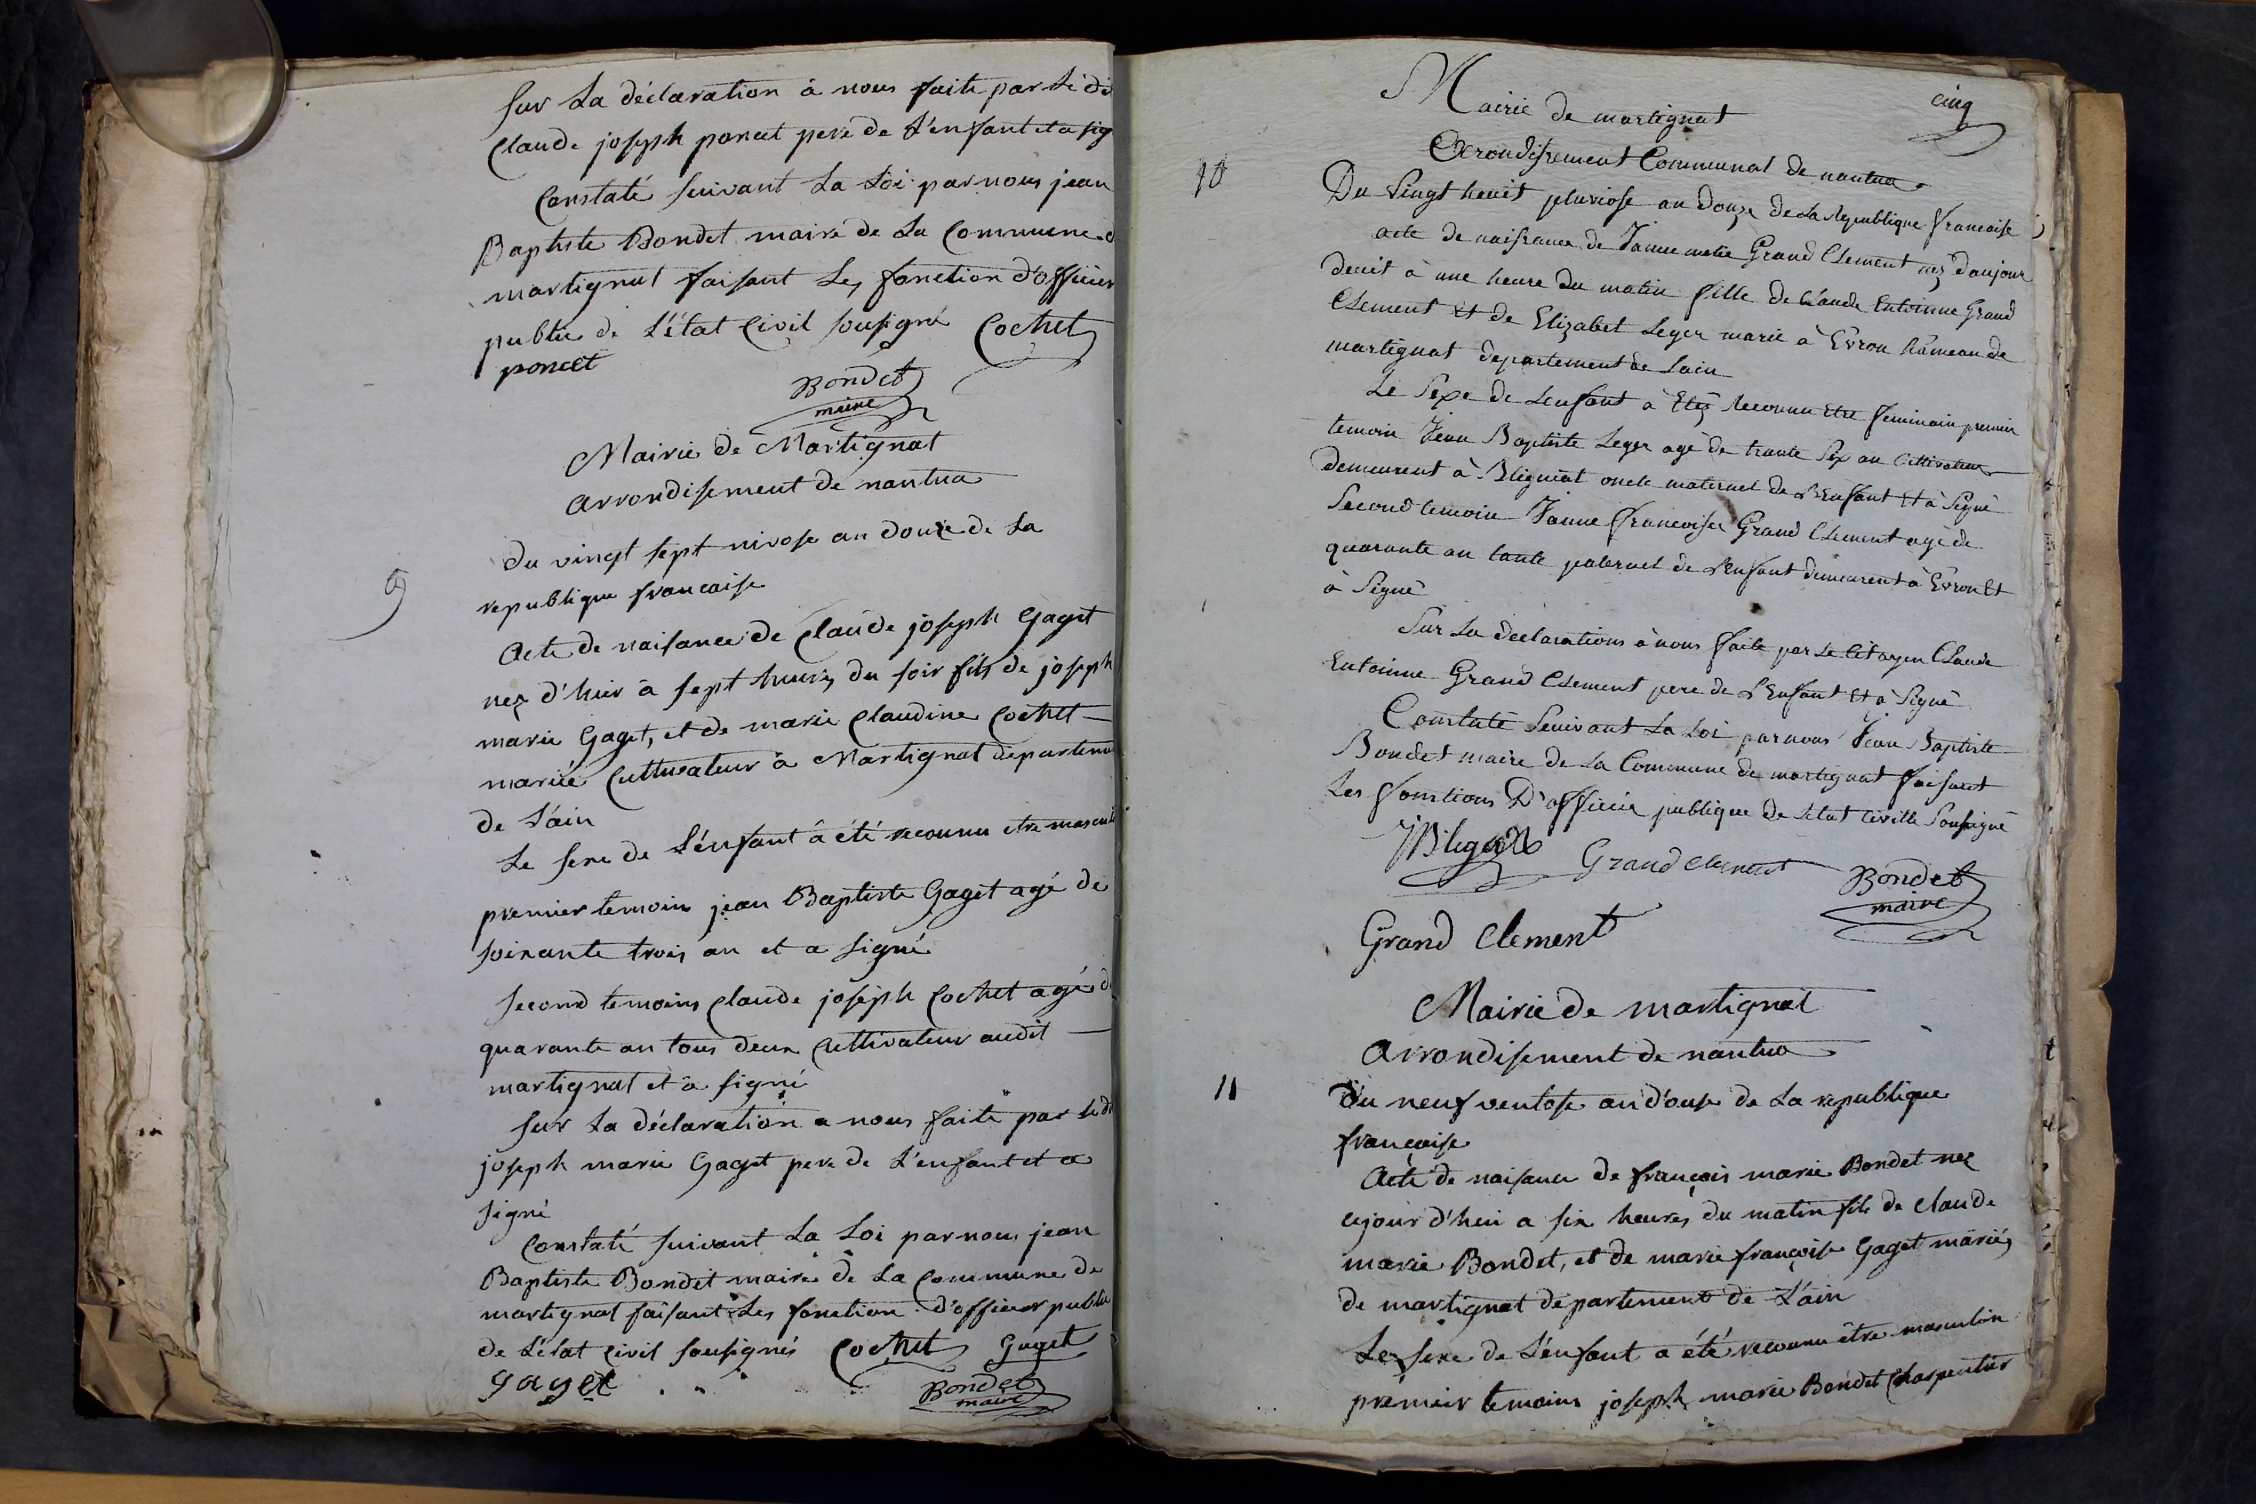 Sur La déclaration à nous faite par Le di
Claude joseph poncet pere de L'enfant et a sig
Constaté suivant La Loi par nous jean
Baptiste Bondet maire de La Commune d
martignat faisant Les fonction d'officier
public de L'état Civil sousigné Cochet
poncet
Bondet
maire
Mairie de Martignat
arrondisement de nantua
9
du vingt sept nivose an douze de La
republique francaise
Acte de naisance de Claude joseph Gaget
nez d'hier à sept heures du soir fils de joseph
marie Gaget, et de marie Claudine Cochet
mariée Cultivateur à Martignat departeme
de L'ain
Le sexe de L'énfant à été reconnu etre masculi
premier temoin jean Baptiste Gaget agé de
soixante trois an et a signé
second temoins Claude joseph Cochet agé d
quarante an tous deux Cultivateur audit
martignat et a signé
sur La déclaration a nous faite par le di
joseph marie Gaget pere de L'enfant et a
signé
Constaté suivant La Loi par nous jean
Baptiste Bondet maire de La Commune de
martignat faisant Les fonction d'officier public
de L'état Civil sousignés Cochet Gaget
gaget
Bondet
maire
cinq
Mairie de martignat
Arondisement Communal de nantua
10
Du Vingt heuit pluviose an Douze de La Republique francoise
acte de naissance de Janne Grand Clement nez daujour
deuit à une heure du matin fille de Claude Entoinne Grand
Clement Et de Elizabet Leger marié à Evron hameau de
martignat departement de Lain
Le Sexe de Lenfant à Etez Reconnu Etre feminain premier
temoin Jean Baptiste Leger agé de trante Six an Cultivateur
demeurent à Bligniat oncle maternel de L'Enfant Et à Signé
Second temoin Janne francoise Grand Clement agé de
quarante an tante paternel de L'Enfant demeurent à Evron Et
à Signé
Sur La declarations à nous faite par Le Citoyen Claude
Entoinne Grand Clement pere de L'Enfant Et à Signé
Constaté Seuivant La Loi par nous Jean Baptiste
Bondet maire de La Commune de martignat faisant
Les fonctions D'officier publique de letat Civille Sousigné
JB leger
Grand Clement
Bondet
maire
Grand Clement
Mairie de martignat
Arrondisement de nantua
11
du neuf ventose an d'ouse de La republique
françoise
Acte de naisance de françois marie Bondet nez
cejour d'hui a six heures du matin fils de claude
marie Bondet, et de marie françoise Gaget mariés
de martignat département de L'ain
Le sexe de L'énfant a été reconnu être masculin
prémier temoins joseph marie Bondet Charpentier